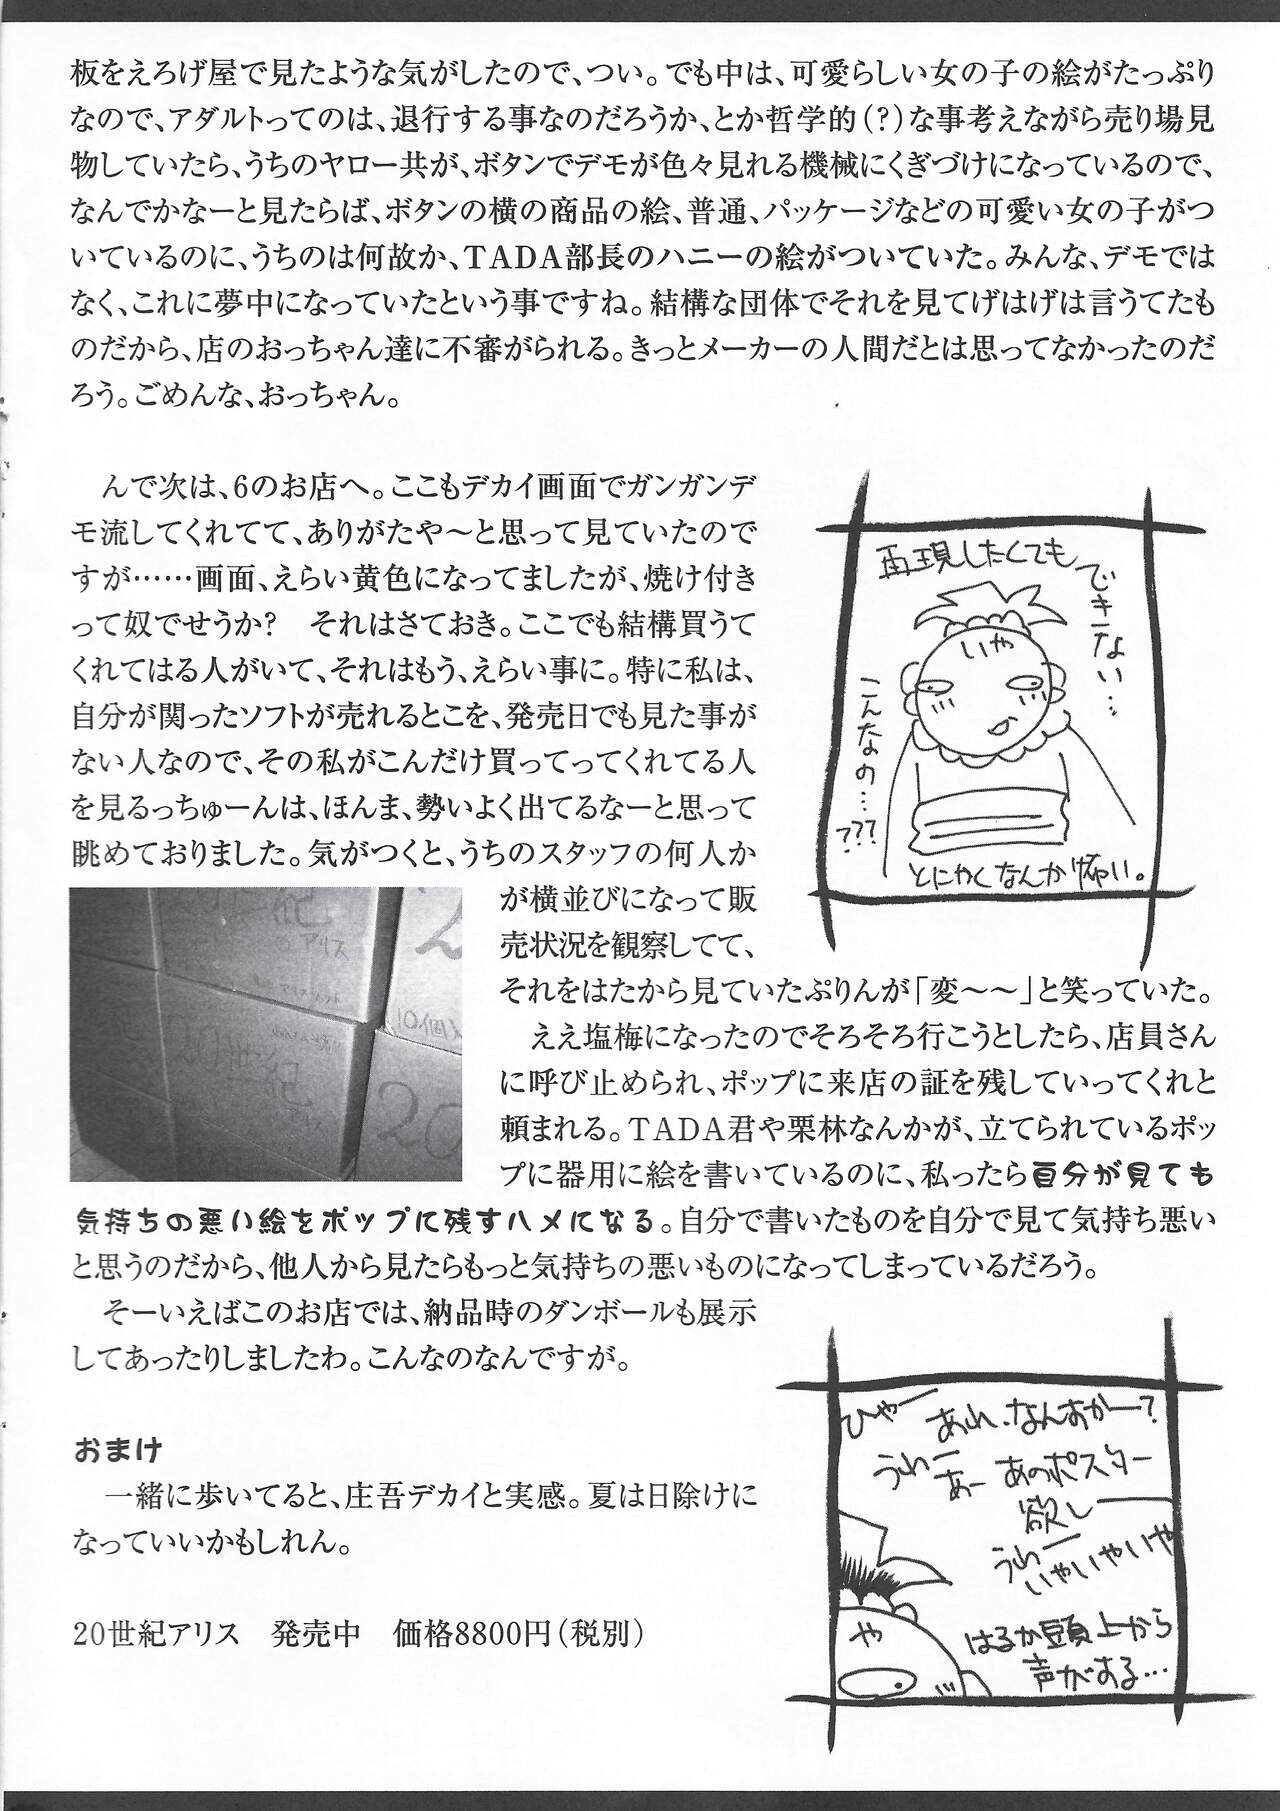 板をえろげ屋で見たような気がしたので、つい。でも中は、可愛らしい女の子の絵がたっぷり
なので、アダルトってのは、退行する事なのだろうか、とか哲学的(?)な事考えながら売り場見
物していたら、うちのヤロー共が、ボタンでデモが色々見れる機械にくぎづけになっているので、
なんでかなーと見たらば、ボタンの横の商品の絵、普通、パッケージなどの可愛い女の子がつ
いているのに、うちのは何故か、TADA部長のハニーの絵がついていた。みんな、デモでは
なく、これに夢中になっていたという事ですね。結構な団体でそれを見てげはげは言うてたも
のだから、店のおっちゃん達に不審がられる。きっとメーカーの人間だとは思ってなかったのだ
ろう。ごめんな、おっちゃん。
んで次は、6のお店へ。ここもデカイ画面でガンガンデ
モ流してくれてて、ありがたや〜と思って見ていたので
すが……画面、えらい黄色になってましたが、焼け付き
って奴でせうか?　それはさておき。ここでも結構買うて
くれてはる人がいて、それはもう、えらい事に。特に私は、
自分が関ったソフトが売れるとこを、発売日でも見た事が
ない人なので、その私がこんだけ買ってってくれてる人
を見るっちゅーんは、ほんま、勢いよく出てるなーと思って
眺めておりました。気がつくと、うちのスタッフの何人か
が横並びになって販
売状況を観察してて、
それをはたから見ていたぷりんが「変〜〜」と笑っていた。
ええ塩梅になったのでそろそろ行こうとしたら、店員さん
に呼び止められ、ポップに来店の証を残していってくれと
頼まれる。TADA君や栗林なんかが、立てられているポッ
プに器用に絵を書いているのに、私ったら自分が見ても
気持ちの悪い絵をポップに残すハメになる。自分で書いたものを自分で見て気持ち悪い
と思うのだから、他人から見たらもっと気持ちの悪いものになってしまっているだろう。
そーいえばこのお店では、納品時のダンボールも展示
してあったりしましたわ。こんなのなんですが。
おまけ
一緒に歩いてると、庄吾デカイと実感。夏は日除けに
なっていいかもしれん。
20世紀アリス　発売中　価格8800円(税別)
再現したくても
できない…
いや
こんなの…
???
とにかくなんか怖い。
アリス
20世紀
20
ひゃー
あれ、なんすかー?
うわー
あー あのポスター
欲しー
うわー
いやいやいや
や
はるか頭上から
声がする…